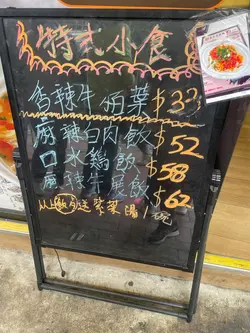 特式小食
香辣牛𦟌菜 $33
麻辣白肉飯 $52
口水鷄飯 $58
麻辣牛展飯 $62
從上飯多送紫菜湯1碗